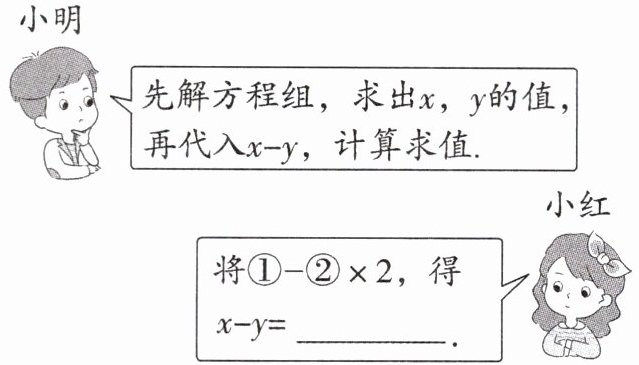 小明
先解方程组，求出x，y的值，
再代入x-y，计算求值.
小红
将①-②×2，得
x-y=__________.